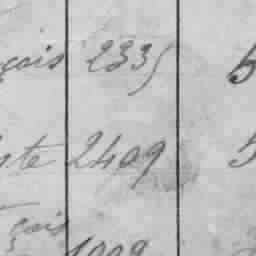 çois 2335 5
ste 2409 5
çois
1009